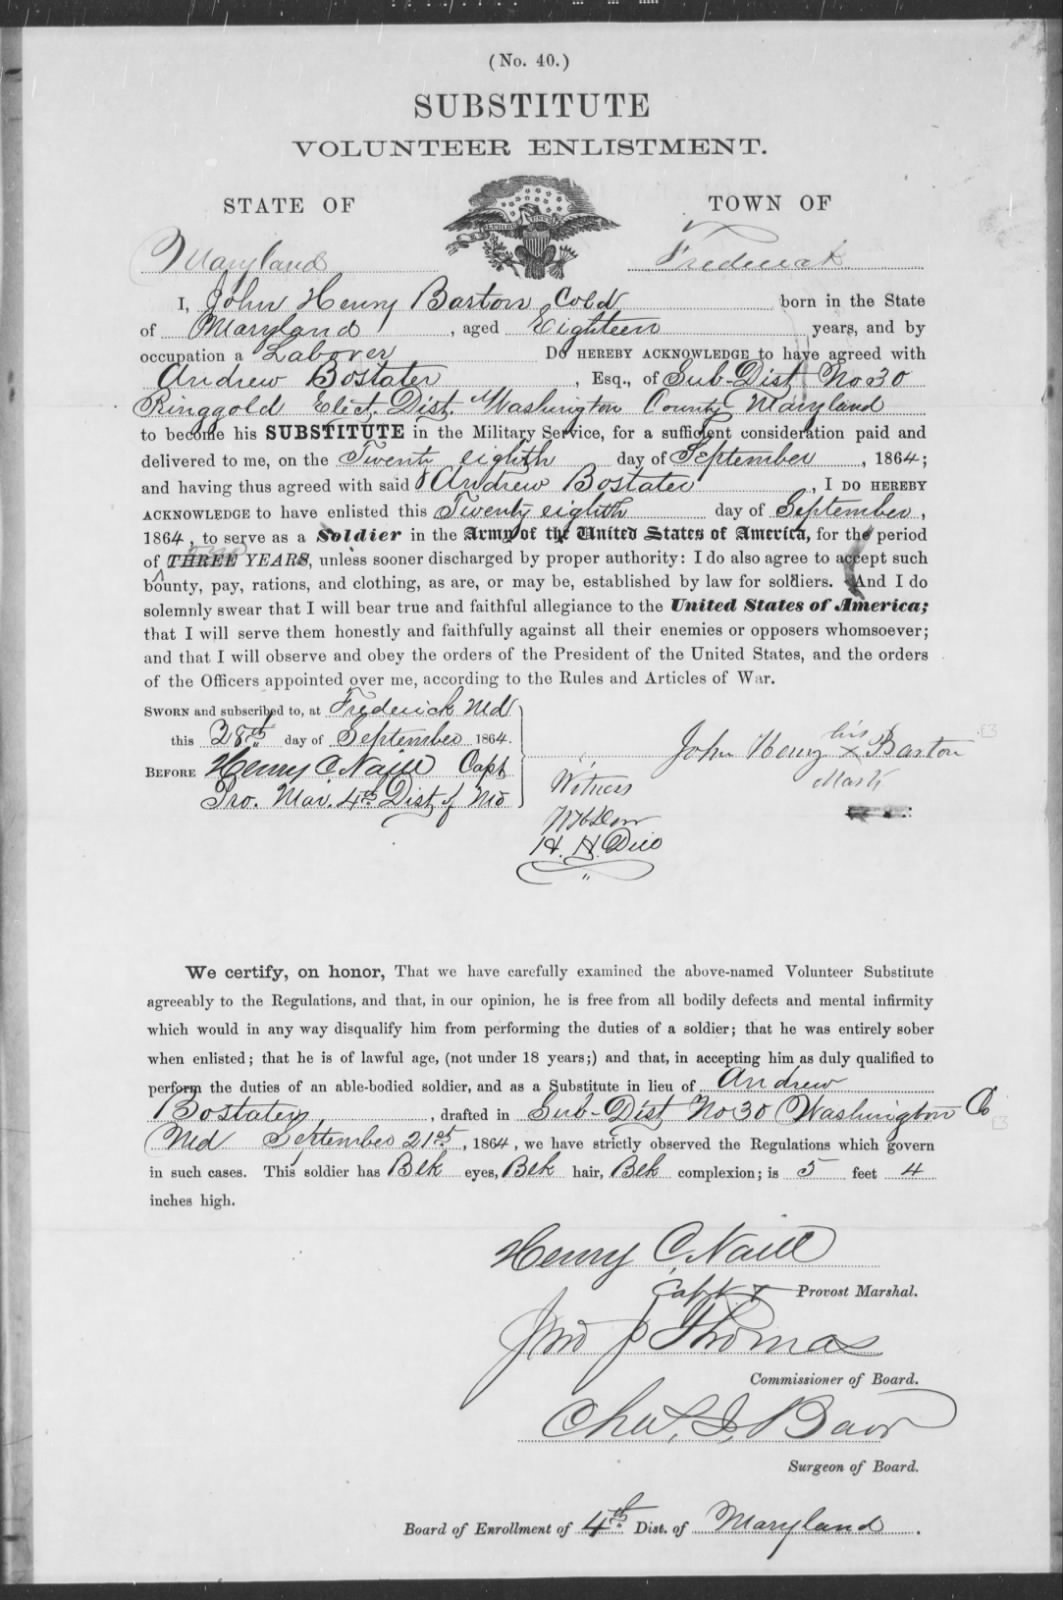 (No. 40.)
SUBSTITUTE
VOLUNTEER ENLISTMENT.
STATE OF
TOWN OF
Maryland
Frederick
I, John Henry Barton Cold born in the State
of Maryland, aged Eighteen years, and by
occupation a Laborer Do HEREBY ACKNOWLEDGE to have agreed with
Andrew Bostater, Esq., of Sub-Dist No 30
Ringgold Elect. Dist. Washington County Maryland
to become his SUBSTITUTE in the Military Service, for a sufficient consideration paid and
delivered to me, on the Twenty eighth day of September, 1864;
and having thus agreed with said Andrew Bostater, I DO HEREBY
ACKNOWLEDGE to have enlisted this Twenty eighth day of September,
1864, to serve as a Soldier in the Army of the United States of America, for the period
of THREE YEARS, unless sooner discharged by proper authority: I do also agree to accept such
bounty, pay, rations, and clothing, as are, or may be, established by law for soldiers. And I do
solemnly swear that I will bear true and faithful allegiance to the United States of America;
that I will serve them honestly and faithfully against all their enemies or opposers whomsoever;
and that I will observe and obey the orders of the President of the United States, and the orders
of the Officers appointed over me, according to the Rules and Articles of War.
SWORN and subscribed to, at Frederick Md
this 28th day of September 1864.
BEFORE Henry C Naill Capt
Pro. Mar. 4th Dist of Md
his
John Henry x Barton
Mark
Witness
H. H. Dill
We certify, on honor, That we have carefully examined the above-named Volunteer Substitute
agreeably to the Regulations, and that, in our opinion, he is free from all bodily defects and mental infirmity
which would in any way disqualify him from performing the duties of a soldier; that he was entirely sober
when enlisted; that he is of lawful age, (not under 18 years;) and that, in accepting him as duly qualified to
perform the duties of an able-bodied soldier, and as a Substitute in lieu of Andrew
Bostater, drafted in Sub-Dist No 30 Washington Co
Md September 21st, 1864, we have strictly observed the Regulations which govern
in such cases. This soldier has Blk eyes, Blk hair, Blk complexion; is 5 feet 4
inches high.
Henry C. Naill
Capt & Provost Marshal.
Jno J Thomas
Commissioner of Board.
Surgeon of Board.
Board of Enrollment of 4th Dist. of Maryland.